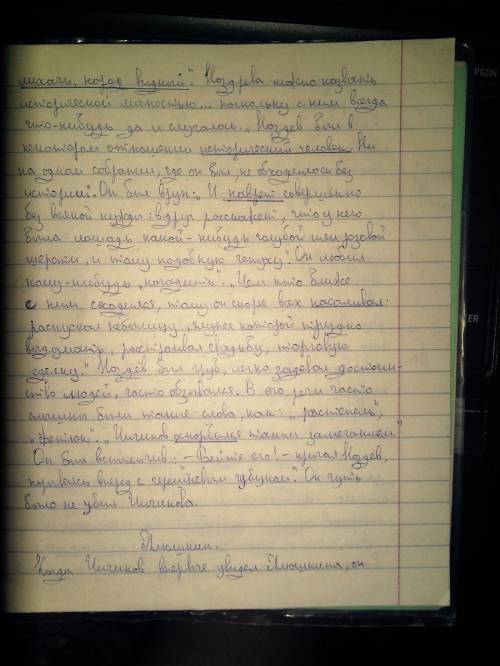 лихачи, народ видный". Ноздрева можно назвать
исторической личностью... поскольку с ним всегда
что-нибудь да и случалось. „Ноздрев был в
некотором отношении исторический человек. Ни
на одном собрании, где он был, не обходилось без
истории". Он был врун: „И наврет совершенно
без всякой нужды: вдруг расскажет, что у него
была лошадь какой-нибудь голубой или розовой
шерсти, и тому подобную чепуху". Он любил
кому-нибудь „нагадить". „Чем кто ближе
с ним сходился, тому он скорее всех насаливал:
распускал небылицу, глупее которой трудно
выдумать, расстраивал свадьбу, торговую
сделку." Ноздрев был груб, легко задевал достоин-
ство людей, часто обзывался. В его речи часто
слышны были такие слова, как: „ракалия",
„фетюк". „Чичиков оскорбился таким замечанием."
Он был вспыльчив. - Бейте его! - кричал Ноздев,
порываясь вперед с черешневым чубуком". Он чуть
было не убил Чичикова.
Плюшкин.
Когда Чичиков впервые увидел Плюшкина, он
PGDN
ENTER